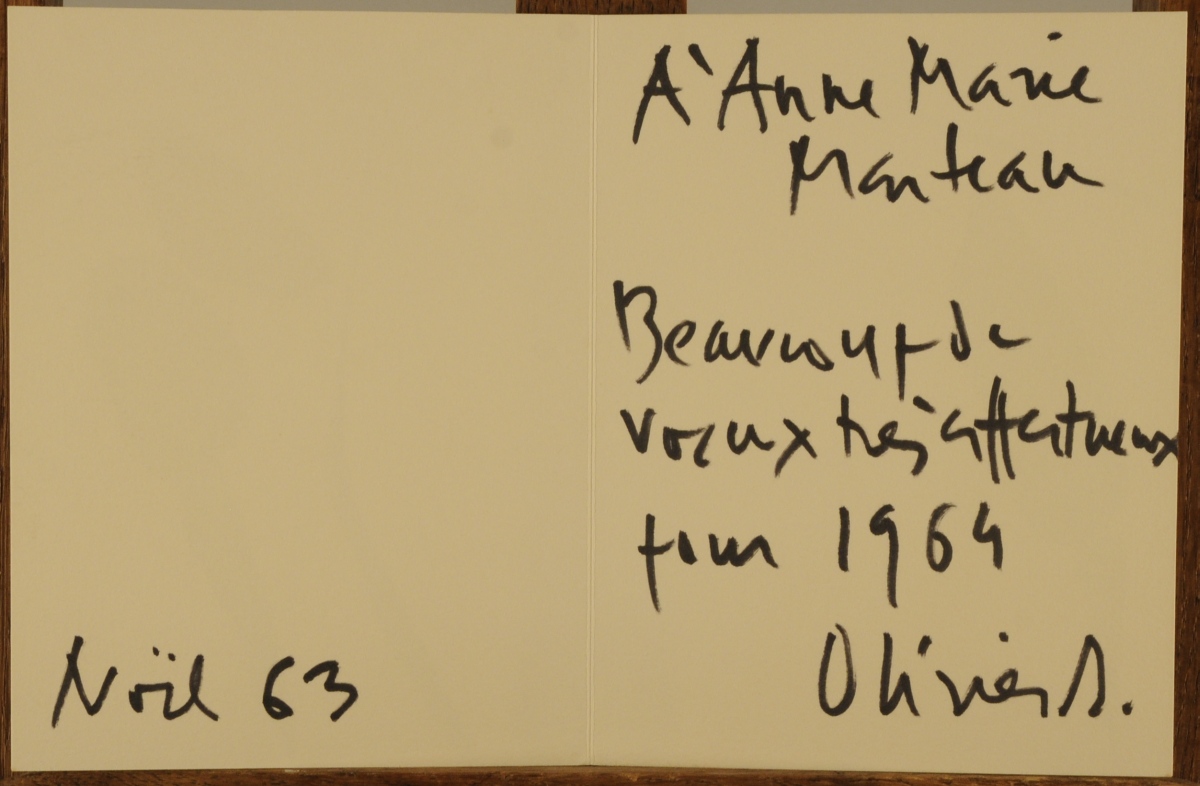 Noël 63
A' Anne Marie
Manteau
Beaucoup de
voeux très affectueux
pour 1964
Olivier D.